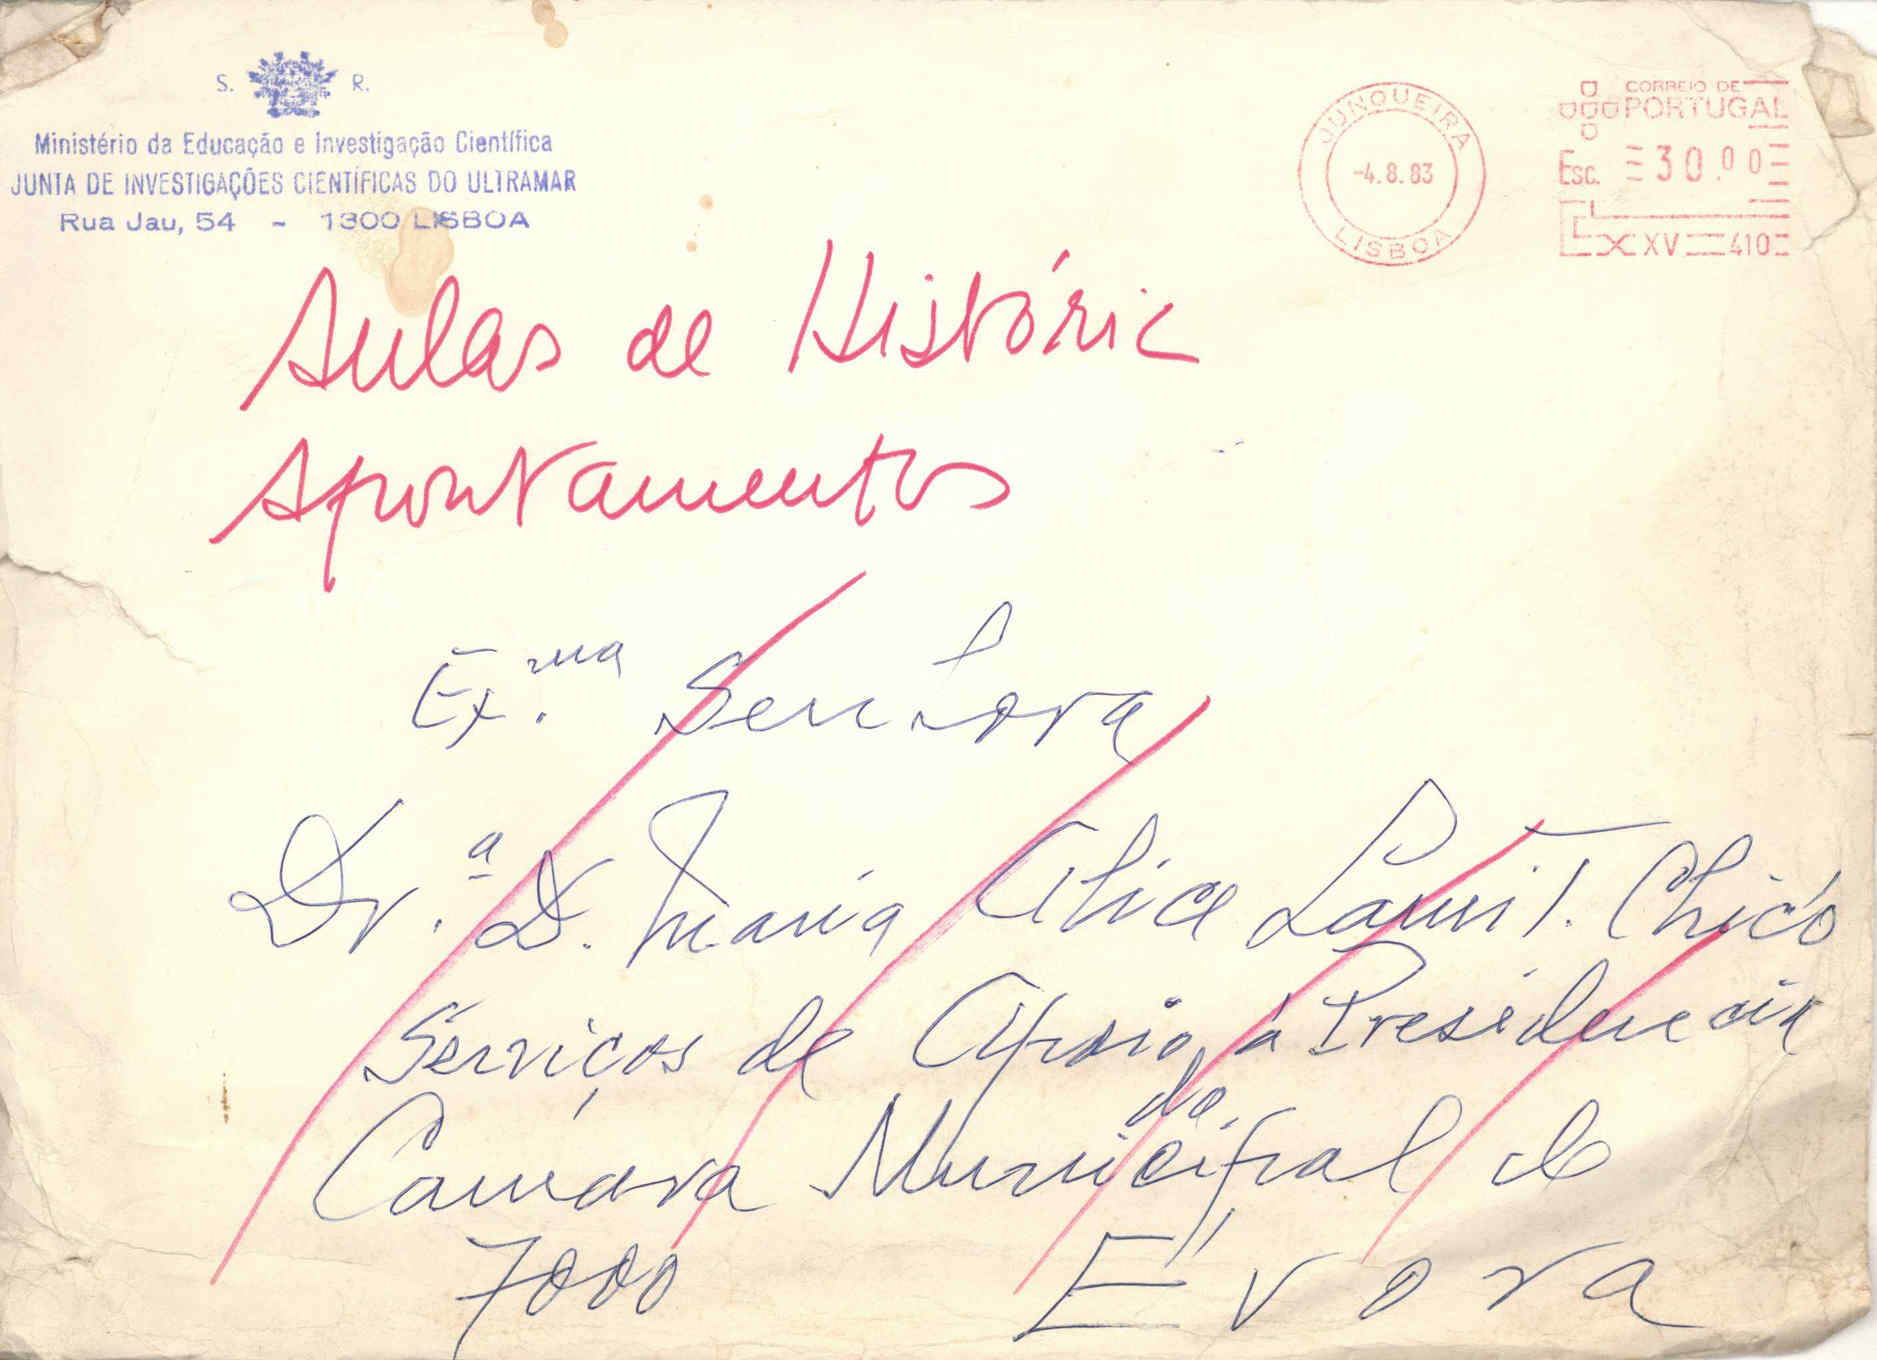 S. R.
Ministério da Educação e Investigação Científica
JUNTA DE INVESTIGAÇÕES CIENTÍFICAS DO ULTRAMAR
Rua Jau, 54 - 1300 LISBOA
JUNQUEIRA
-4.8.83
LISBOA
CORREIO DE
PORTUGAL
Esc. 30.00
XV 410
Aulas de História
Apontamentos
Ex.ma Senhora
Dr.ª D. Maria Alice Lami T. Chicó
Serviços de Apoio à Presidência
da
Câmara Municipal de
7000 Évora